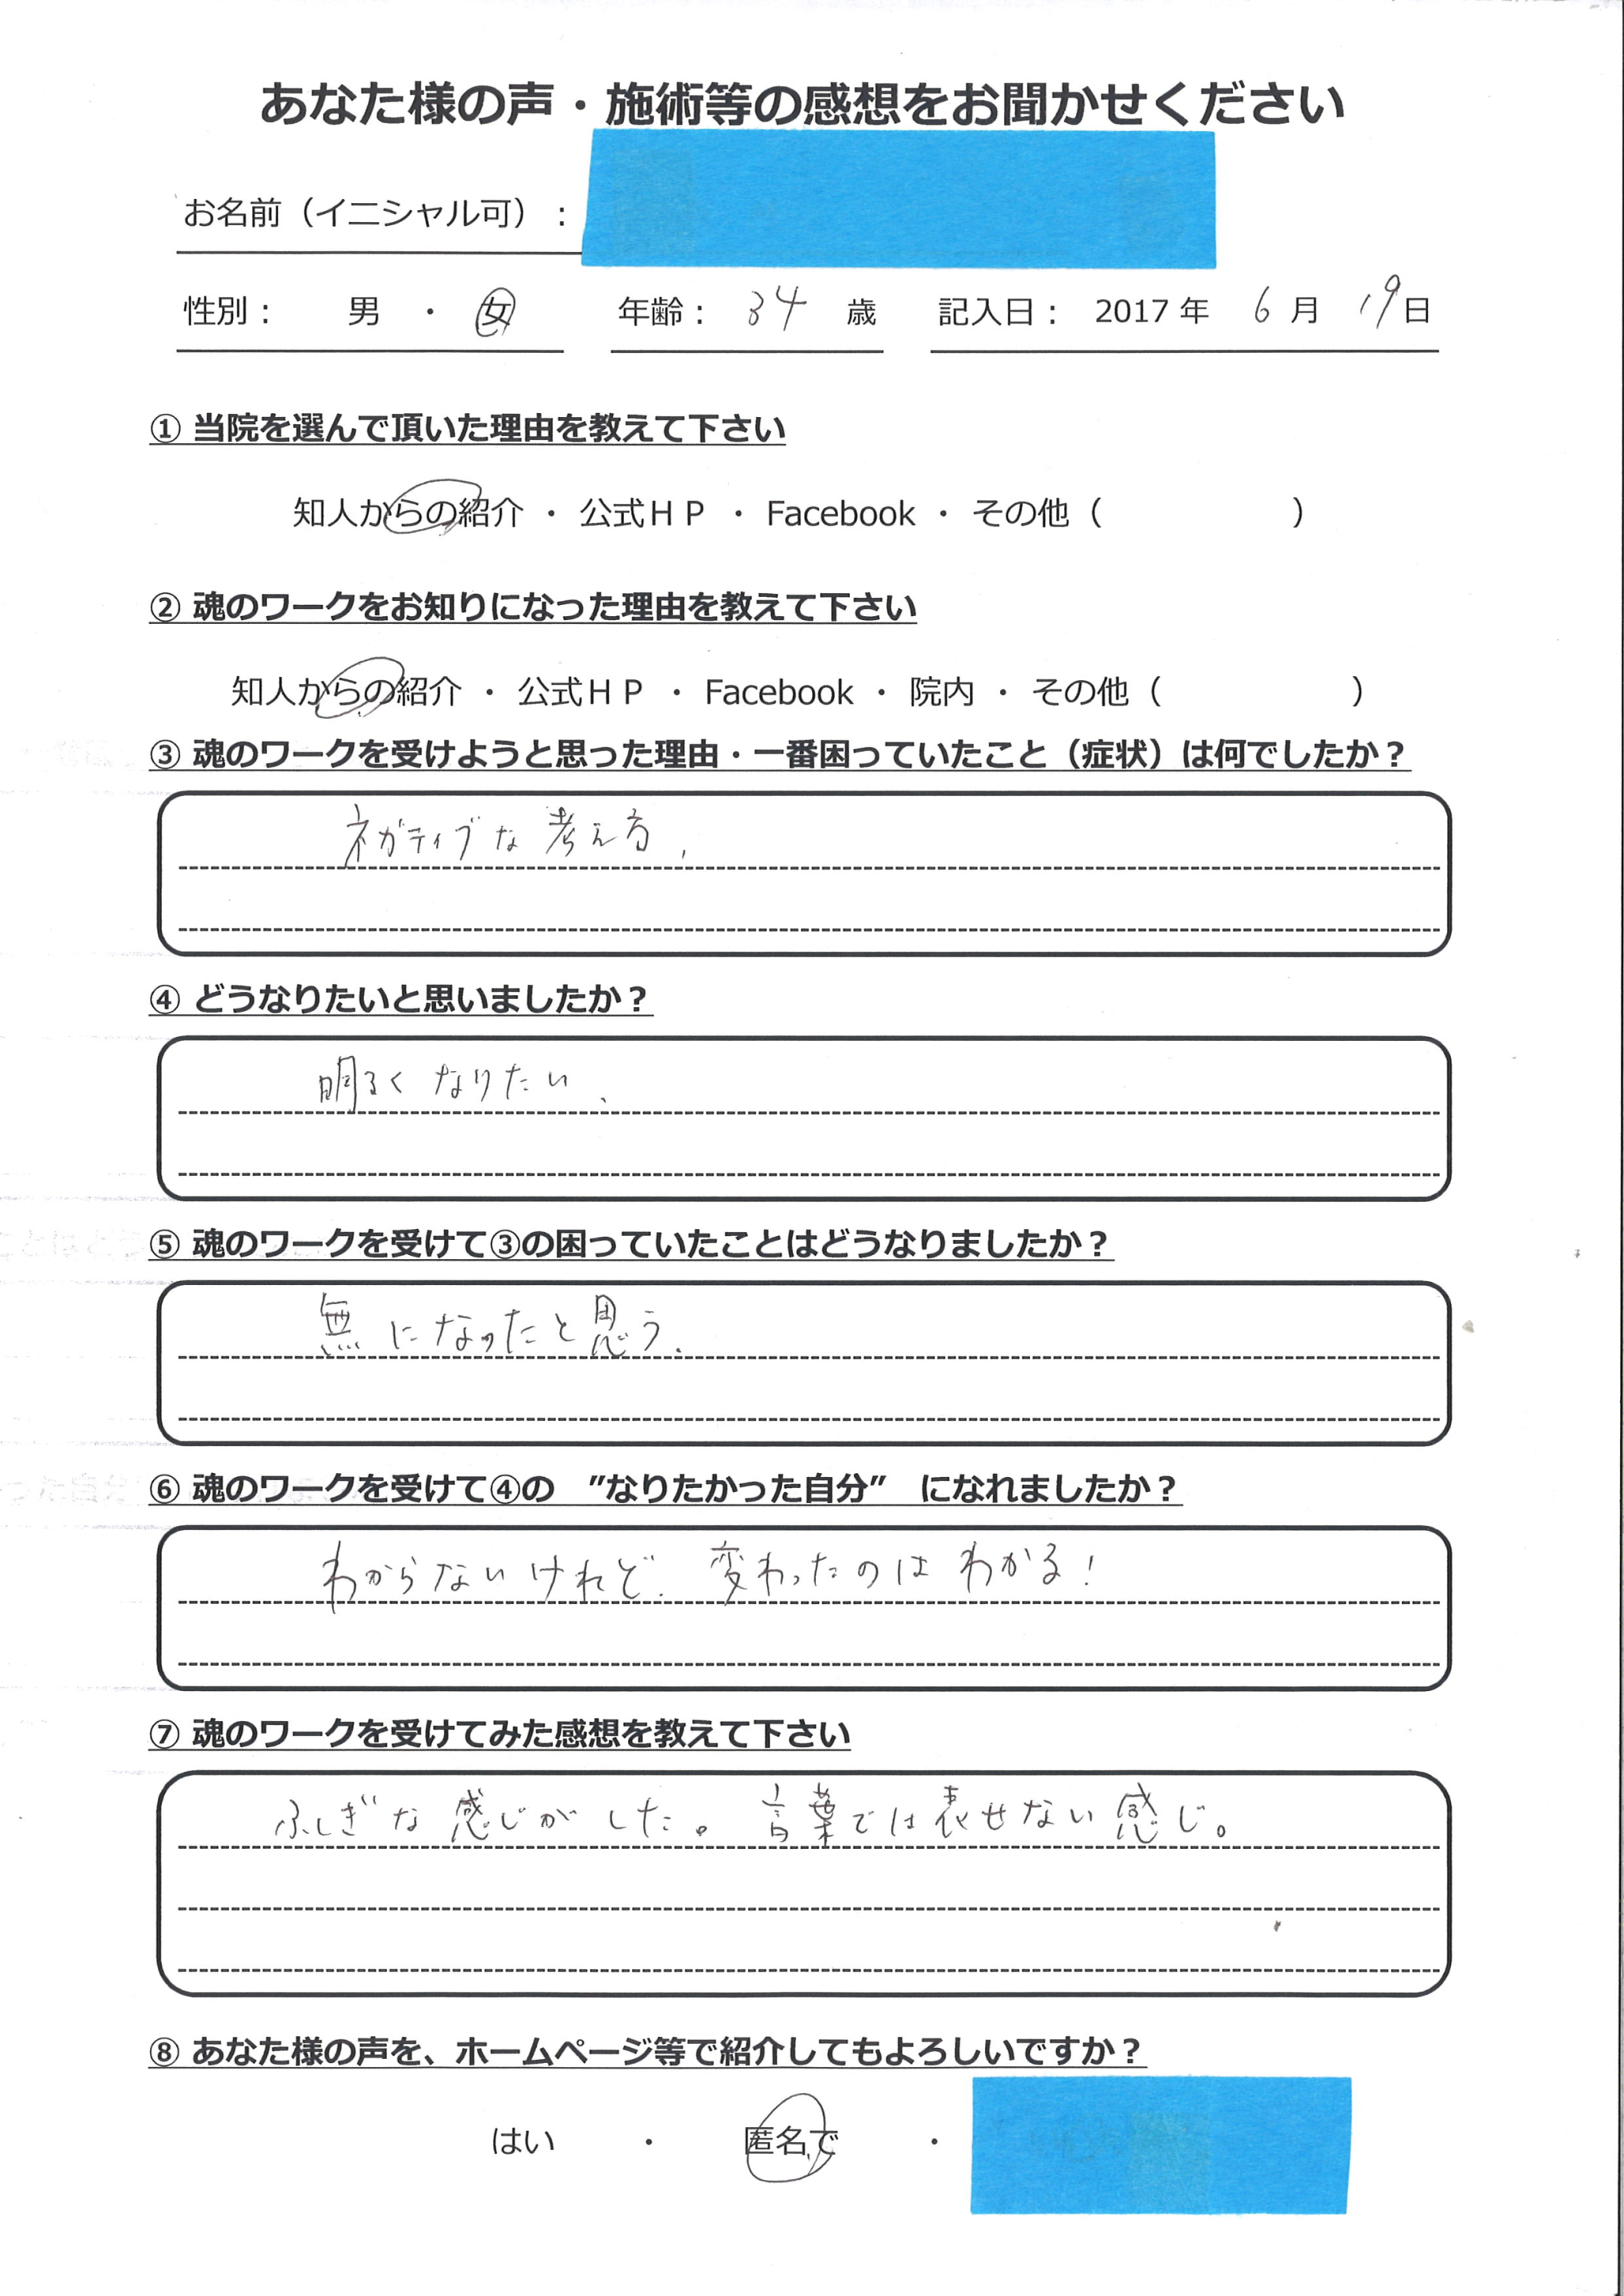 あなた様の声・施術等の感想をお聞かせください
お名前（イニシャル可）：
性別： 男 ・ 女 年齢： 34 歳 記入日： 2017 年 6 月 19 日
① 当院を選んで頂いた理由を教えて下さい
知人からの紹介 ・ 公式ＨＰ ・ Facebook ・ その他（ ）
② 魂のワークをお知りになった理由を教えて下さい
知人からの紹介 ・ 公式ＨＰ ・ Facebook ・ 院内 ・ その他（ ）
③ 魂のワークを受けようと思った理由・一番困っていたこと（症状）は何でしたか？
ネガティブな考え方、
④ どうなりたいと思いましたか？
明るくなりたい、
⑤ 魂のワークを受けて③の困っていたことはどうなりましたか？
無になったと思う.
⑥ 魂のワークを受けて④の ”なりたかった自分” になれましたか？
わからないけれど. 変わったのはわかる！
⑦ 魂のワークを受けてみた感想を教えて下さい
ふしぎな感じがした。言葉では表せない感じ。
⑧ あなた様の声を、ホームページ等で紹介してもよろしいですか？
はい ・ 匿名で ・